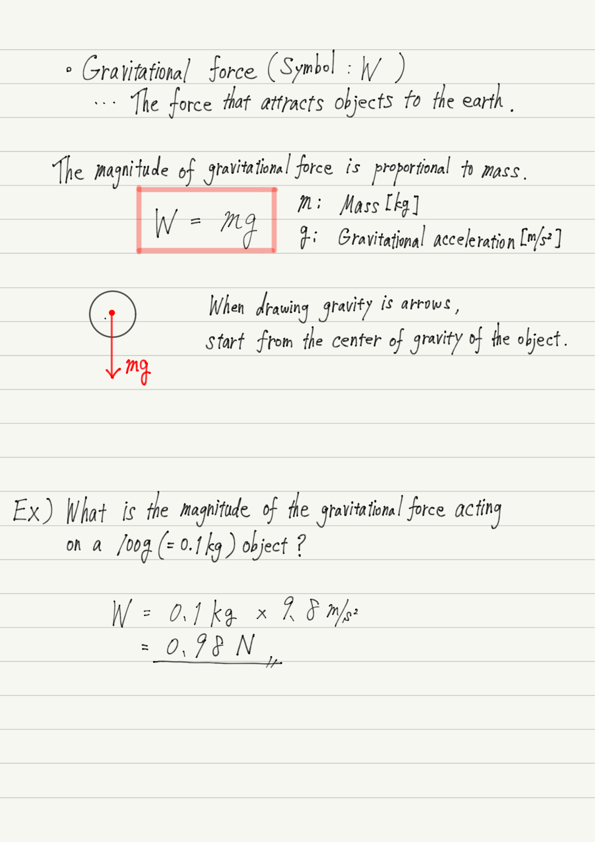 • Gravitational force (Symbol : W )
... The force that attracts objects to the earth.
The magnitude of gravitational force is proportional to mass.
W = mg
m: Mass [kg]
g: Gravitational acceleration [m/s²]
When drawing gravity is arrows,
start from the center of gravity of the object.
mg
Ex) What is the magnitude of the gravitational force acting
on a 100g (= 0.1 kg) object ?
W = 0.1 kg × 9.8 m/s²
= 0.98 N